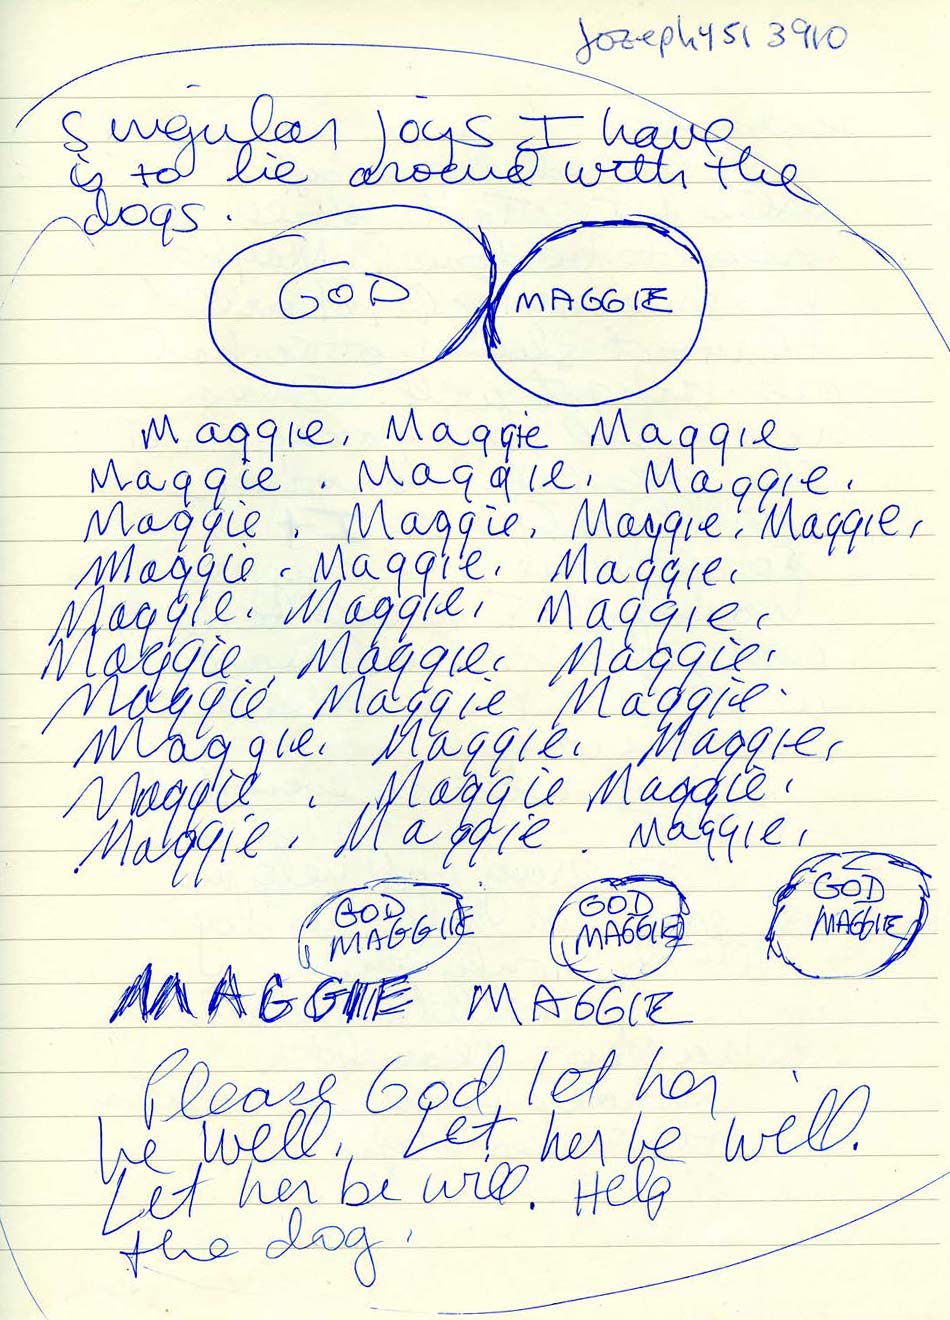 jozeph4513910
Singular joys I have
is to lie around with the
dogs.
GOD MAGGIE
Maggie. Maggie Maggie
Maggie. Maggie. Maggie.
Maggie. Maggie. Maggie. Maggie.
Maggie. Maggie. Maggie.
Maggie. Maggie. Maggie.
Maggie. Maggie. Maggie.
Maggie Maggie Maggie.
Maggie. Maggie. Maggie.
Maggie. Maggie Maggie.
Maggie. Maggie. Maggie.
GOD GOD GOD
MAGGIE MAGGIE MAGGIE
MAGGIE MAGGIE
Please God, let her
be well. Let her be well.
Let her be well. Help
the dog.